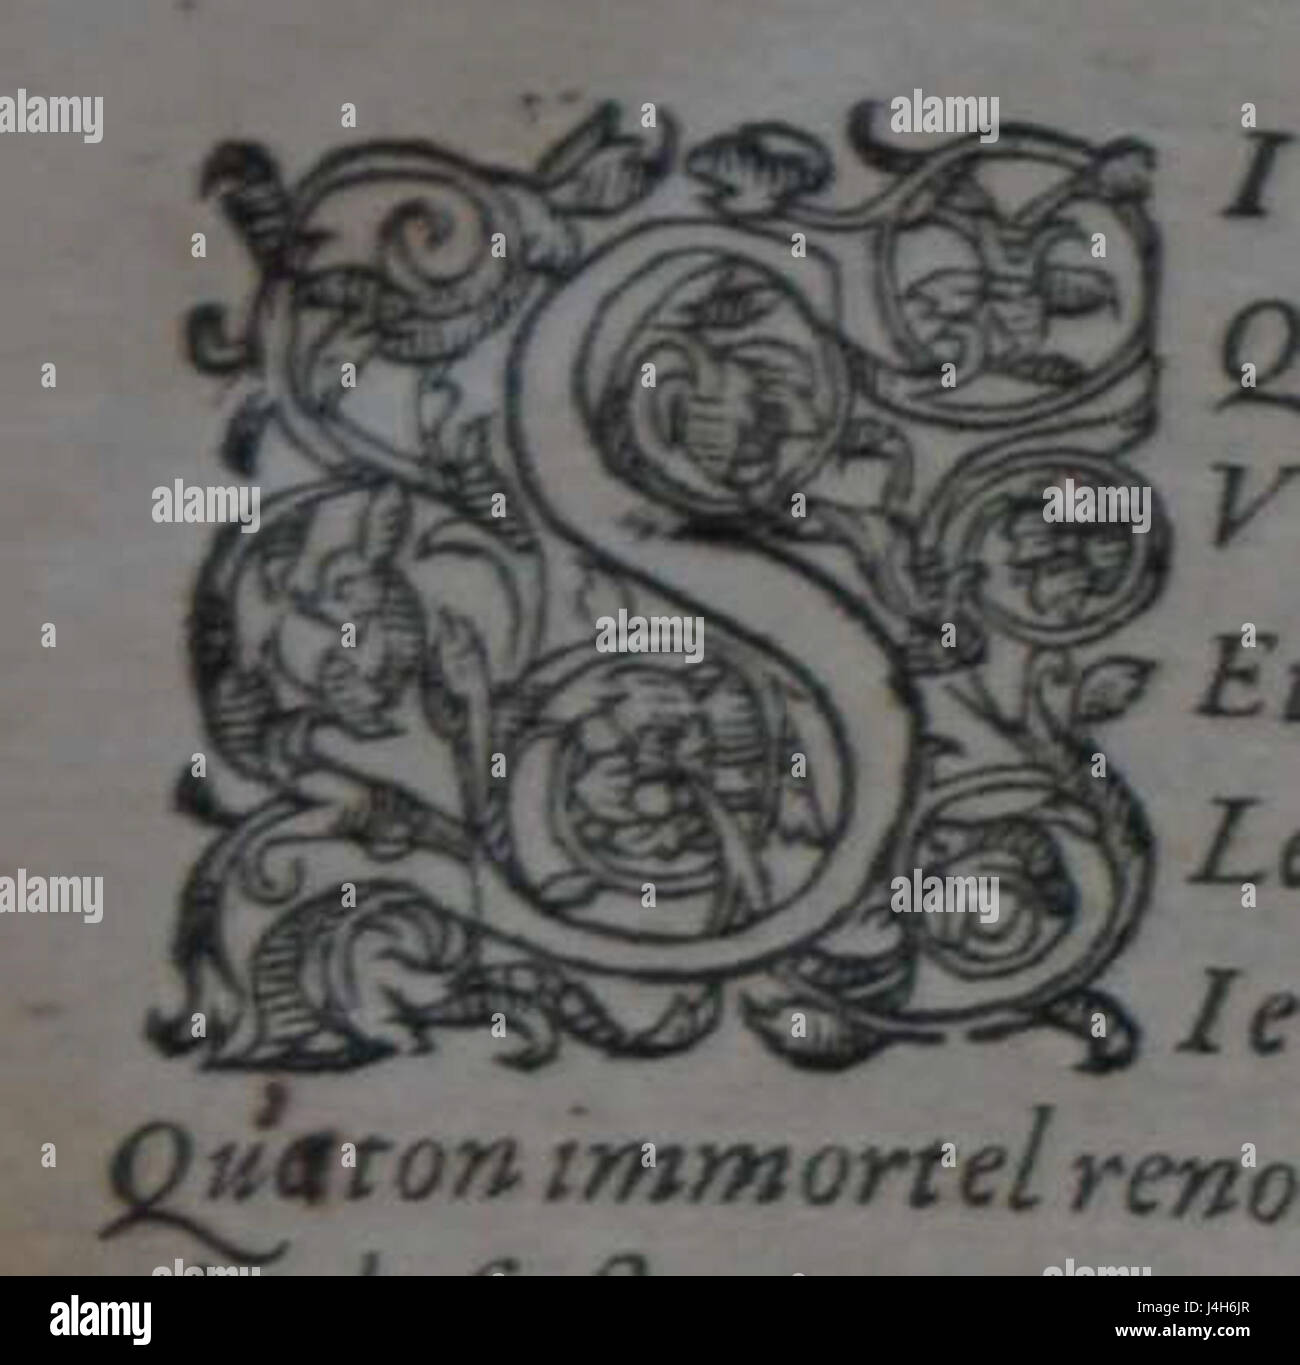 S I
Q
V
E
L
Ie
Qu'aton immortel reno
alamy
Image ID: J4H6JR
www.alamy.com